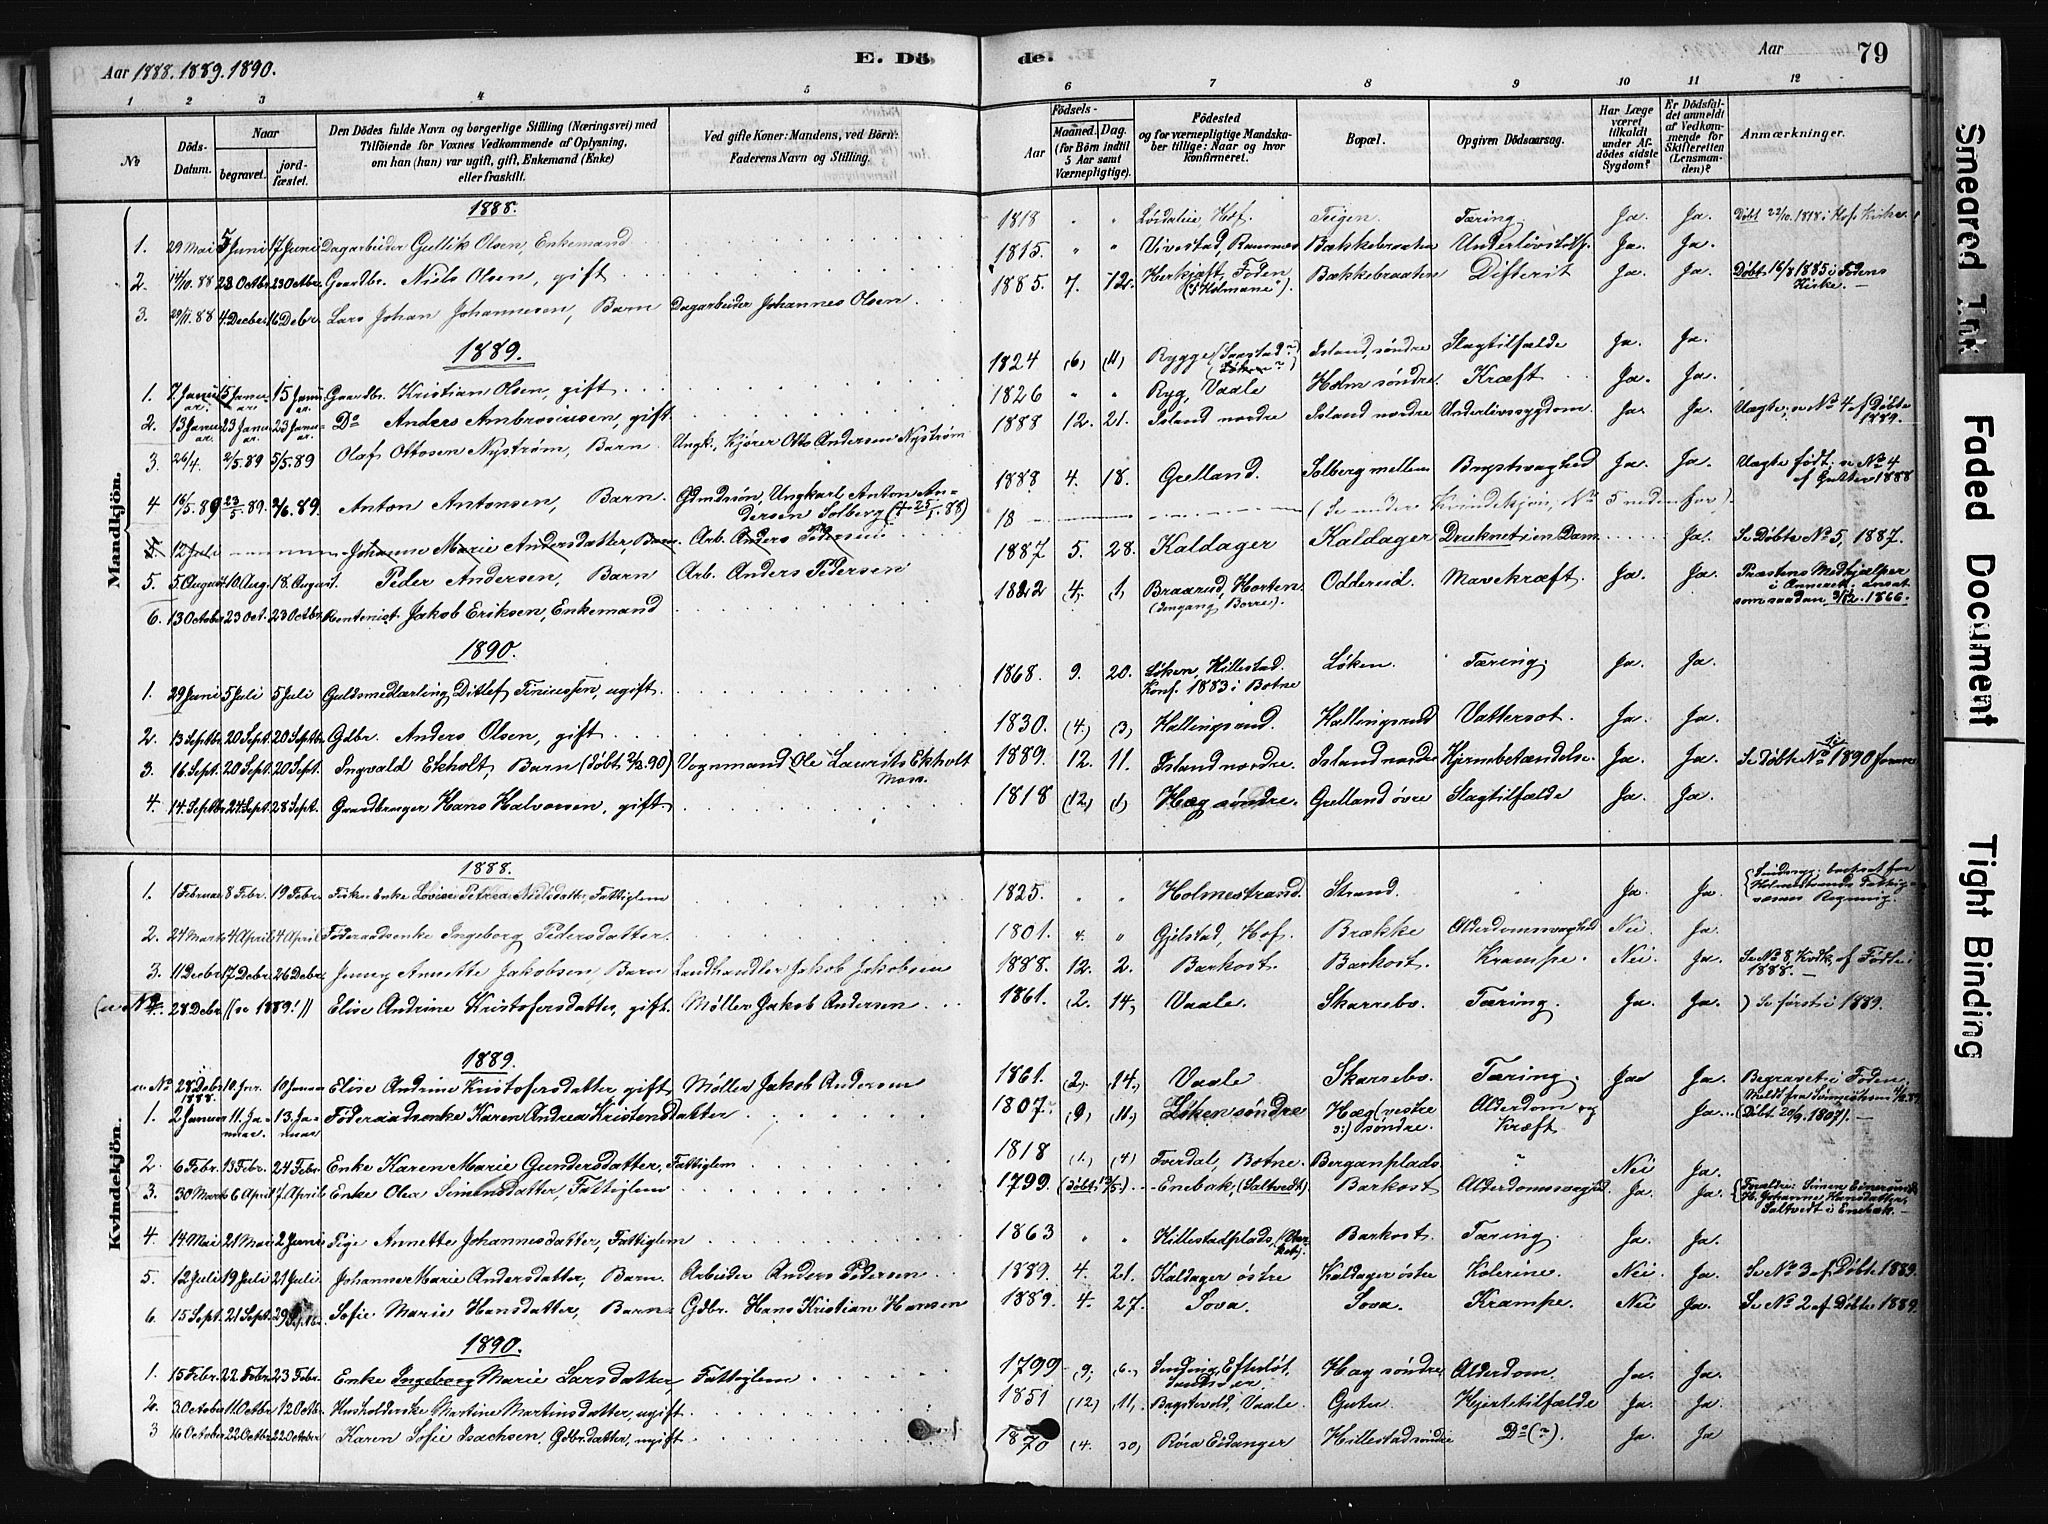 Aar 1888. 1889. 1890.
E. Dö
de.
Aar
79
1 2 3 4 5
6 7 8 9 10 11 12
No
Döds-Datum.
Naar
begravet.
jordfæstet.
Den Dödes fulde Navn og borgerlige Stilling (Næringsvei) med
Tilföiende for Voxnes Vedkommende af Oplysning,
om han (hun) var ugift, gift, Enkemand (Enke)
eller fraskilt.
Ved gifte Koner: Mandens, ved Börn:
Faderens Navn og Stilling.
Födsels-
Aar
Maaned. Dag.
(for Börn indtil
5 Aar samt
Værnepligtige).
Födested
og for værnepligtige Mandska-
ber tillige: Naar og hvor
konfirmeret.
Bopæl.
Opgiven Dödsaarsag.
Har Læge
været
tilkaldt
under Af-
dödes sidste
Sygdom?
Er Dödsfal-
det anmeldt
af Vedkom-
mende for
Skifteretten
(Lensman-
den)?
Anmærkninger.
Mandkjön.
1888.
1. 29 Mai 5 Juni 17 Juni Dagarbeider Gullik Olsen, Enkemand 1818 " " Hof. Teigen. Tæring. Ja. Ja. Døbt 22/10. 1818 i Hofs Kirke.
2. 14/10. 88 23 Octbr. 23 Octbr. Gaardbr. Niels Olsen, gift 1815. " " Vivestad, Ramnes Bækkebraaten Ja. Ja.
3. 29/11. 88 4 Decber. 16 Debr. Lars Johan Johannesen, Barn Dagarbeider Johannes Olsen. 1885. 7. 12. Foden Bækkebraaten Difterit Ja. Ja. Døbt 16/8 1885 i Fodens Kirke.
1889.
1. 7 Januar. 15 Januar 15 Januar. Gaardbr. Kristian Olsen, gift. 1824 (6) (11) Rygge Island, søndre Slagtilfælde Ja. Ja.
2. 13 Januar. 23 Januar. 23 Januar. Do Anders Ambrosiussen, gift. 1826 " " Ryg, Vaale Holm søndre. Kræft. Ja. Ja.
3. 26/4. 2/5. 89 5/5. 89 Olaf Ottosen Nystrøm, Barn Ungk. Kjører Otto Andersen Nystrøm 1888 12. 21. Island nordre Island nordre Underlivssygdom. Ja. Ja. Uægte; se No 4 af Døbte 1889.
4 16/5. 89 23/5. 89. 2/6. 89. Anton Antonsen, Barn. Gdmdsøn, Ungkarl Anton Andersen Solberg 1888 4. 18. Grelland. Solberg mellem Brystsvaghed Ja. Ja. Uægte født; se No 4 af Gutter 1888
12 Juli Johanne Marie Andersdatter, Barn. Arb. Anders Pedersen 18 (Se under Kvindekjøn, No 5 nedenfor)
5. 5 August 10 Aug. 18. August. Peder Andersen, Barn Arb. Anders Pedersen 1887. 5. 28. Kaldager Kaldager Druknet i en Dam Ja. Se Døbte No 5, 1887.
6. 13 Octobr. 23 Oct. 23 Octbr. Rentenist Jakob Eriksen, Enkemand 1822 (4). (1) Braarud, Horten. Oddersøl. Mavekræft. Ja. Ja. Præstens Medhjælper i Annexet, ansat som saadan 3/12. 1866.
1890.
1. 29 Juni 5 Juli 5 Juli Guldsmedlærling Ditlef Tinius, ugift. 1868. 9. 20. Løken, Hillestad. Konf. 1883 i Botne Løken. Tæring. Ja. Ja.
2. 13 Septbr. 20 Sept. 20 Septbr. Gdbr. Anders Olsen, gift. 1830. (4.) (3) Kallingsrud. Kallingsrud Vattersot. Ja. Ja.
3. 16 Sept. 20 Sept. 20 Sept. Ingvald Ekholt, Barn (døbt 2/2. 90) Vognmand Ole Laurits Ekholt Moss. 1889. 12. 11. Island nordre. Island nordre Hjernebetændelse. Ja. Ja. Se Døbte No 1 1890
4. 14. Septbr. 24 Sept. 28 Sept. Gaardbruger Hans Halvorsen, gift 1818 (12) (1) Hæg søndre. Grelland øvre Slagtilfælde Ja. Ja.
Kvindekjön.
1888.
1. 1 Februar 8 Febr. 19 Febr. Fisker Enke Lovise Petrea Nielsdatter, Fattiglem 1825. " " Holmestrand. Strand. " Ja Ja. Sindssyg; bortsat for Holmestrands Fattigvæsens Regning.
2. 24 Marts 4 April 4 April Føderaadsenke Ingeborg Pedersdatter. 1801. 4. " Gjelstad, Hof. Brække Alderdomssvaghed Nei Ja.
3. 11 Decbr. 17 Debr. 26 Debr. Jenny Annette Jakobsen Barn Landhandler Jakob Jakobsen 1888. 12. 2. Barkost. Barkost. Krampe. Nei. Ja. Se No 8, Kvdk. af Fødte i 1888.
28 Debr. (se 1889!) Elise Andrine Kristofersdatter, gift. Møller Jakob Andersen 1861. 2. 14. Vaale. Skarrebo. Tæring. Ja. Ja. ) Se først i 1889.
1889.
28 Debr. 1888. 10 Jnr. 10 Januar Elise Andrine Kristofersdatter gift Møller Jakob Andersen 1861. (2). 14. Vaale Skarrebo. Tæring. Ja Ja. Begravet i Foden.
1. 2 Januar 11. Januar. 13. Januar Føderaadsenke Karen Andrea Kristensdatter 1807. (9) (11) Løken søndre Hæg (vestre ɔ:) søndre. Alderdom og Kræft Ja. (Døbt 20/9. 1807).
2. 6 Febr. 13 Febr. 24 Febr. Enke Karen Marie Gundersdatter, Fattiglem 1818 (1.) (4) Tverdal, Botne. Berganplads. " Nei Ja.
3. 30 Marts 6 April 7 April Enke Olea Simensdatter Fattiglem 1799. (døbt 13/5.) Enebak, (Saltvedt). Barkost Alderdomssvaghed Ja. Ja. Forældre: Simen H. Johanne Hansdatter, Saltvedt i Enebak.
4. 14 Mai 21 Mai 2 Juni Pige Annette Johannesdatter, Fattiglem 1863 " " Hillestadplads, Barkost. Tæring. Ja. Ja.
5. 12 Juli 19 Juli 21 Juli Johanne Marie Andersdatter, Barn. Arbeider Anders Pedersen 1889. 4. 21. Kaldager østre Kaldager østre Kolerine. Nei Ja. Se No 3 af Døbte 1889.
6. 15 Sept. 21 Sept. 29 Septbr. Sofie Marie Hansdatter, Barn. Gdbr. Hans Kristian Hansen 1889. 4. 27. Sova. Sova. Krampe. Nei Ja. Se No 2 af Døbte 1889.
1890.
1. 15 Febr. 22 Febr. 23 Febr. Enke Ingeborg Marie Larsdatter, Fattiglem. 1799 (9) (6). Sandsvær. Hæg søndre Alderdom. Ja. Ja.
2. 3 October 11 Octbr. 12 Octbr. Husholderske Martine Martinsdatter, ugift. 1851 (12) 11. Bogstvold, Vaale. Guter Hjertetilfælde Ja. Ja.
3 16 October 22 Octbr. 22 Octobr. Karen Sofie Isachsen. Gdbr.datter, ugift 1870 (4. 30) Røra Eidanger Hillestad søndre Do (?). Ja. Ja
Smeared Ink
Faded Document
Tight Binding